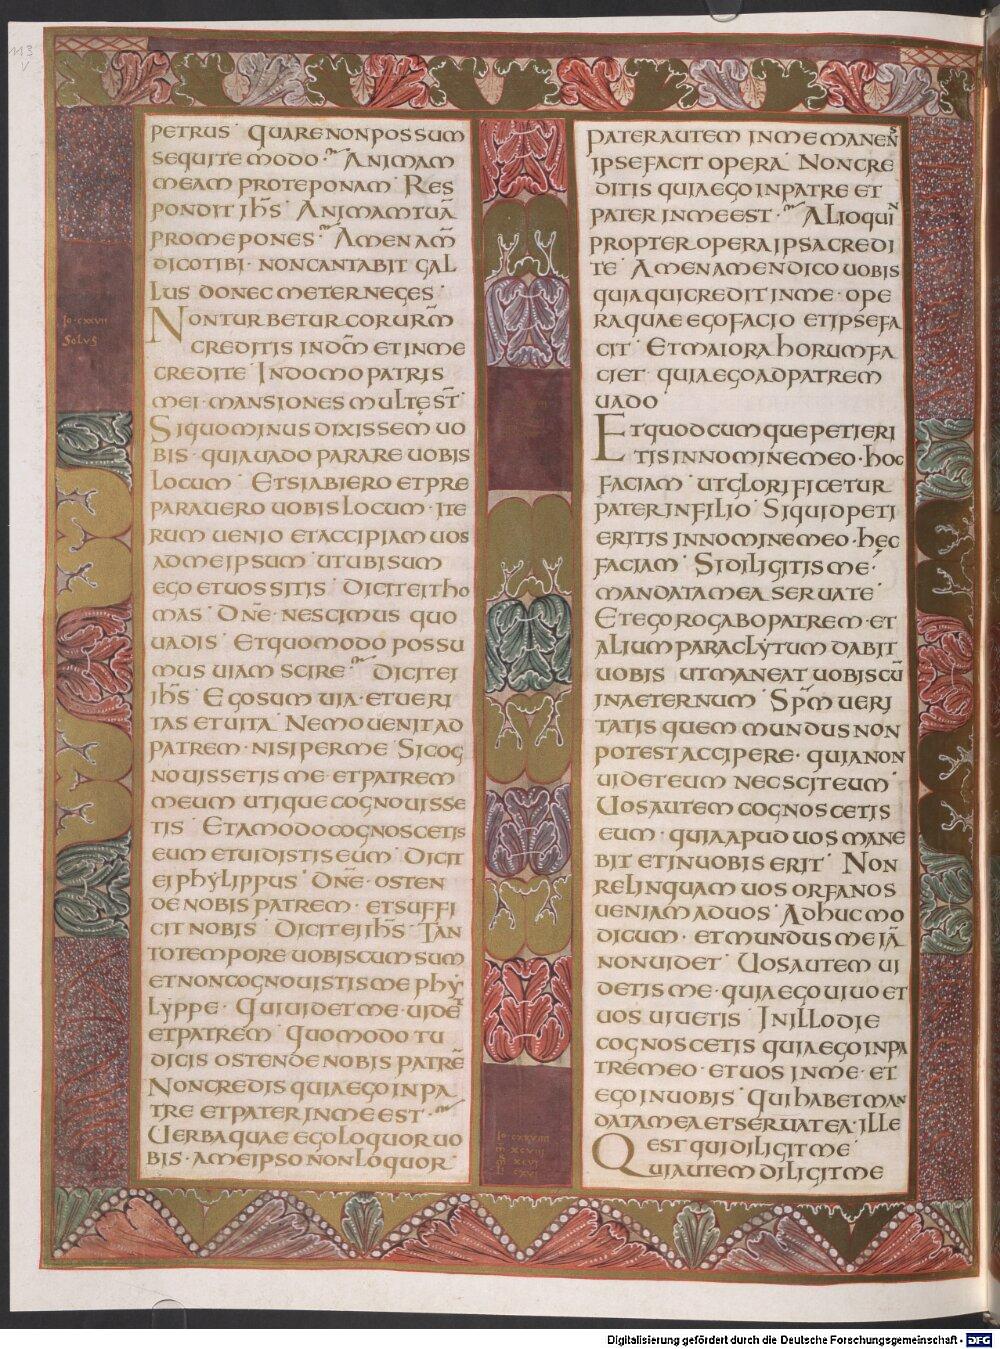 113
v
PETRUS · QUARE NON POSSUM
SEQUI TE MODO · ANIMAM
MEAM PRO TE PONAM · RES
PONDIT IHS̄ · ANIMAM TUĀ
PRO ME PONES · AMEN AM̄
DICO TIBI · NON CANTABIT GAL
LUS DONEC ME TER NEGES ·
NON TURBETUR COR UR̄M
CREDITIS IN DM̄ ET IN ME
CREDITE · IN DOMO PATRIS
MEI · MANSIONES MULTĘ ST̄ ·
SI QUO MINUS DIXISSEM UO
BIS · QUIA UADO PARARE UOBIS
LOCUM · ET SI ABIERO ET PRE
PARAUERO UOBIS LOCUM · ITE
RUM UENIO ET ACCIPIAM UOS
AD ME IPSUM · UT UBI SUM
EGO ET UOS SITIS · DICIT EI THO
MAS · DN̄E · NESCIMUS QUO
UADIS · ET QUOMODO POSSU
MUS UIAM SCIRE · DICIT EI
IHS̄ · EGO SUM UIA · ET UERI
TAS ET UITA · NEMO UENIT AD
PATREM · NISI PER ME · SI COG
NOUISSETIS ME · ET PATREM
MEUM UTIQUE COGNOUISSE
TIS · ET AMODO COGNOSCETIS
EUM ET UIDISTIS EUM · DICIT
EI PHYLIPPUS · DN̄E · OSTEN
DE NOBIS PATREM · ET SUFFI
CIT NOBIS · DICIT EI IHS̄ · TAN
TO TEMPORE UOBISCUM SUM
ET NON COGNOUISTIS ME PHY
LYPPE · QUI UIDET ME · UIDET
ET PATREM · QUOMODO TU
DICIS OSTENDE NOBIS PATRĒ
NON CREDIS QUIA EGO IN PA
TRE ET PATER IN ME EST ·
UERBA QUAE EGO LOQUOR UO
BIS · A ME IPSO NON LOQUOR ·
PATER AUTEM IN ME MANENS
IPSE FACIT OPERA · NON CRE
DITIS QUIA EGO IN PATRE ET
PATER IN ME EST · ALIOQUIN
PROPTER OPERA IPSA CREDI
TE · AMEN AMEN DICO UOBIS
QUIA QUI CREDIT IN ME · OPE
RA QUAE EGO FACIO ET IPSE FA
CIT · ET MAIORA HORUM FA
CIET · QUIA EGO AD PATREM
UADO
ET QUODCUMQUE PETIERI
TIS IN NOMINE MEO · HOC
FACIAM · UT GLORIFICETUR
PATER IN FILIO · SI QUID PETI
ERITIS IN NOMINE MEO · HEC
FACIAM · SI DILIGITIS ME ·
MANDATA MEA SERUATE ·
ET EGO ROGABO PATREM · ET
ALIUM PARACLYTUM DABIT
UOBIS · UT MANEAT UOBISCŪ
IN AETERNUM · SPM̄ UERI
TATIS QUEM MUNDUS NON
POTEST ACCIPERE · QUIA NON
UIDET EUM NEC SCIT EUM ·
UOS AUTEM COGNOSCETIS
EUM · QUIA APUD UOS MANE
BIT ET IN UOBIS ERIT · NON
RELINQUAM UOS ORFANOS
UENIAM AD UOS · ADHUC MO
DICUM · ET MUNDUS ME IĀ
NON UIDET · UOS AUTEM UI
DETIS ME · QUIA EGO UIUO ET
UOS UIUETIS · IN ILLO DIE
COGNOSCETIS QUIA EGO IN PA
TRE MEO · ET UOS IN ME · ET
EGO IN UOBIS · QUI HABET MAN
DATA MEA ET SERUAT EA · ILLE
EST QUI DILIGIT ME ·
QUI AUTEM DILIGIT ME
Io · cxxvii
Solus
Io · cxxviii
Digitalisierung gefördert durch die Deutsche Forschungsgemeinschaft - DFG